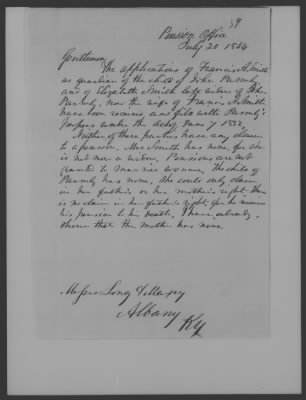 59
Pension Office
July 20 1854
Gentlemen,
The applications of Francis A. Smith
as guardian of the child of John
and of Elizabeth Smith late widow of John
now the wife of Francis A. Smith,
have been received and filed with
papers under the Act of
Neither of these parties have any claim
to a pension, Mrs Smith has none, for she
is not now a widow, Pensions are not
granted to married women, The child of
has none, She could only claim
in her father's or her mother's right. There
is no claim in her father's right, for he received
his pension to his death, I have already,
shown that the mother has none.
Messrs Long & Maxey
Albany
Ky